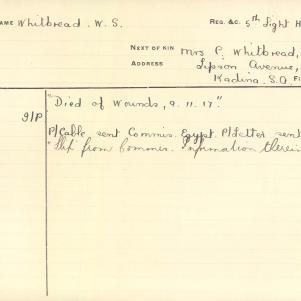 NAME Whitbread. W. S. REG. &C. 5th Light H
NEXT OF KIN Mrs C. Whitbread,
ADDRESS Lipson Avenue,
Kadina. S.A.
"Died of Wounds, 9.11.17."
P/Cable sent Commis. Egypt. P/Letter sent
from Commis. Information therein